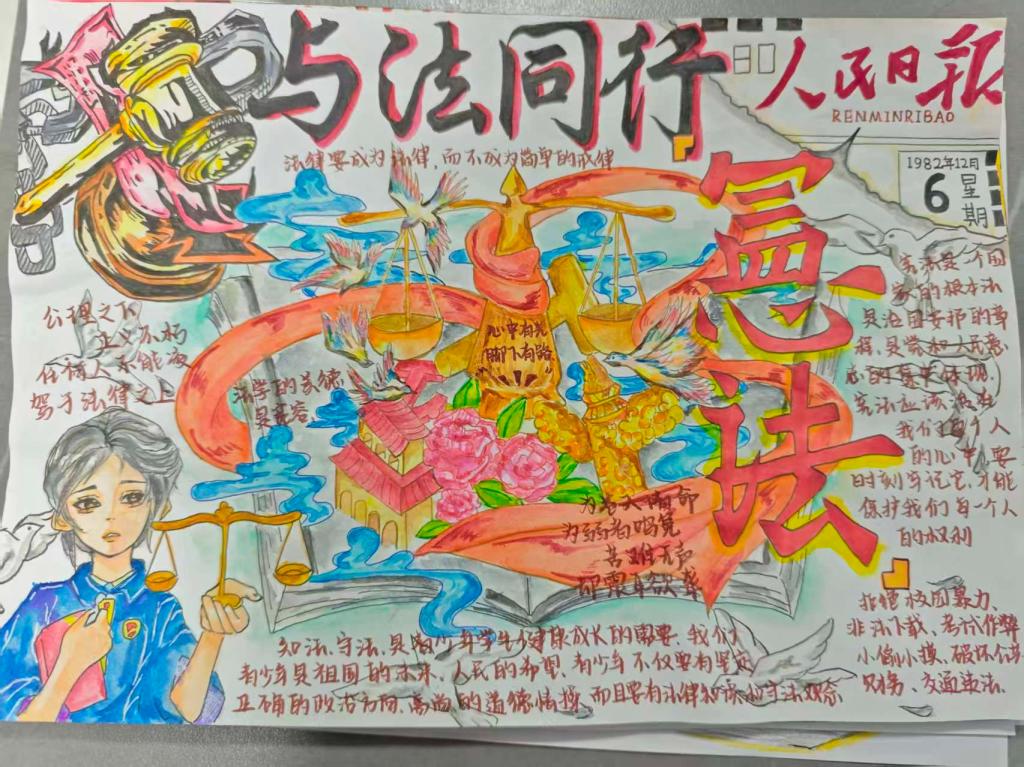 与法同行
人民日报
RENMINRIBAO
1982年12月
6
星
期
法律要成为法律，而不成为简单的戒律
宪法
宪法是一个国
家的根本法
是治国安邦的
民意
志的集中体现.
宪法应该
我们每个人
的心中，要
时刻牢记它，才能
保护我们每一个人
的权利
公理之下
正义不朽
任何人不能凌
驾于法律之上
心中有光
脚下有路
法学的美德
是
为
为弱者鸣
苦难无声
知法、守法、是青少年学生健康成长的需要.我们
青少年是祖国的未来，人民的希望，青少年不仅要有坚定
正确的政治方向、高尚的道德情操，而且要有法律知识和守法观念
拒绝校园暴力、
非法下载、考试作弊
小偷小摸、破坏公共
交通违法.